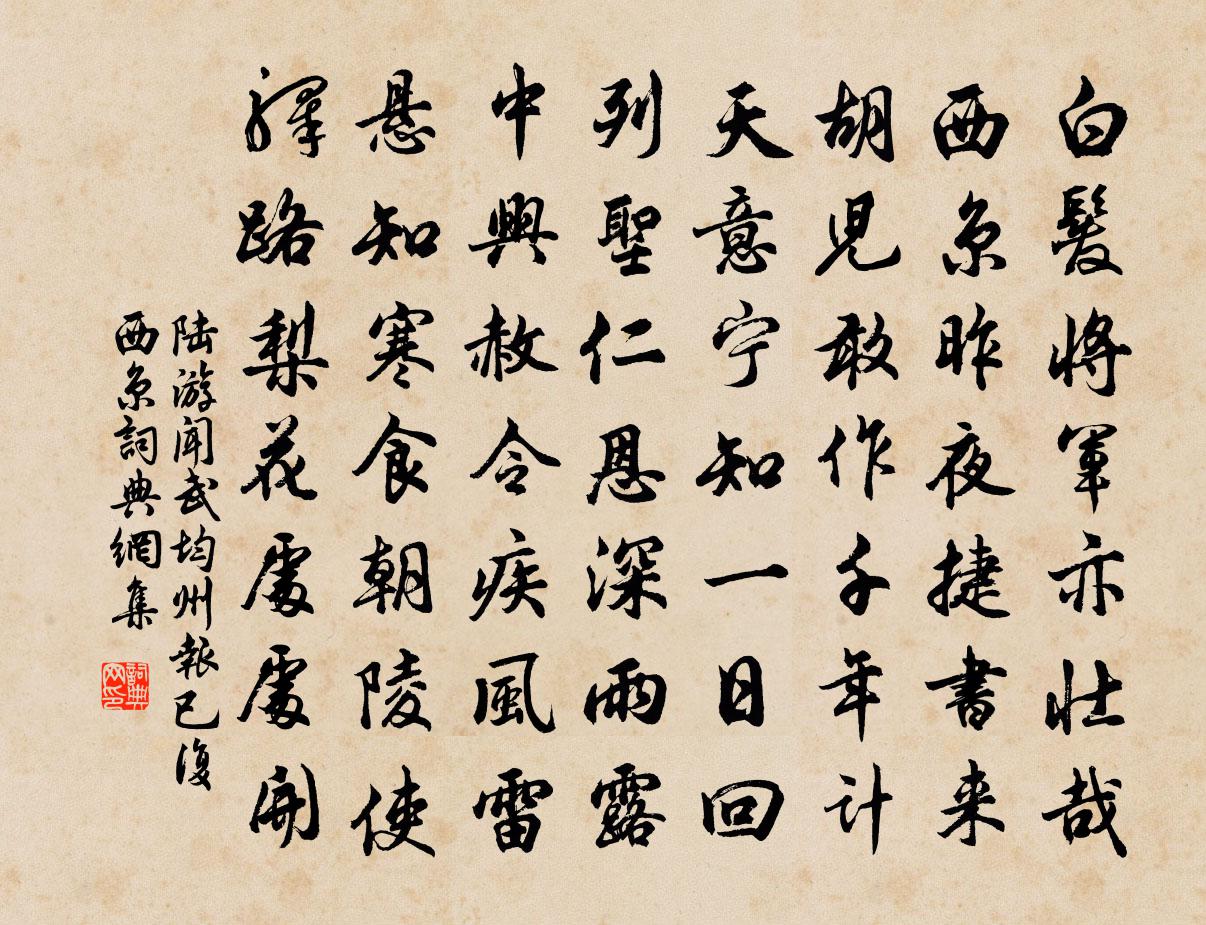 白髮將軍亦壯哉
西京昨夜捷書来
胡兒敢作千年计
天意宁知一日回
列聖仁恩深雨露
中興赦令疾風雷
悬知寒食朝陵使
驛路梨花處處開
陆游闻武均州報已復
西京詞典網集
詞典网印